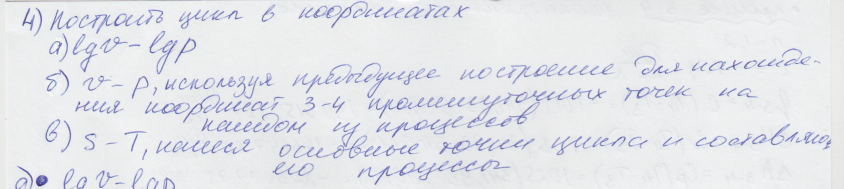 4) Построить цикл в координатах
а) lgv - lgp
б) v - p, используя предыдущее построение для нахожде-
ния координат 3-4 промежуточных точек на
каждом из процессов
в) S - T, нанеся основные точки цикла и составляющие
его процессы
а) lgv - lgp